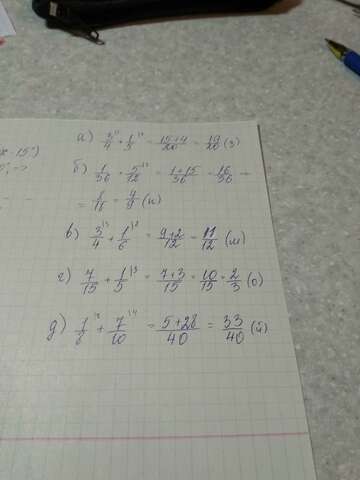 а) 3/4 + 1/5 = 15+4/20 = 19/20 (з)
б) 1/36 + 5/12 = 1+15/36 = 16/36 =
= 4/9 (н)
в) 3/4 + 1/6 = 9+2/12 = 11/12 (м)
г) 7/15 + 1/5 = 7+3/15 = 10/15 = 2/3 (о)
д) 1/8 + 7/10 = 5+28/40 = 33/40 (й)